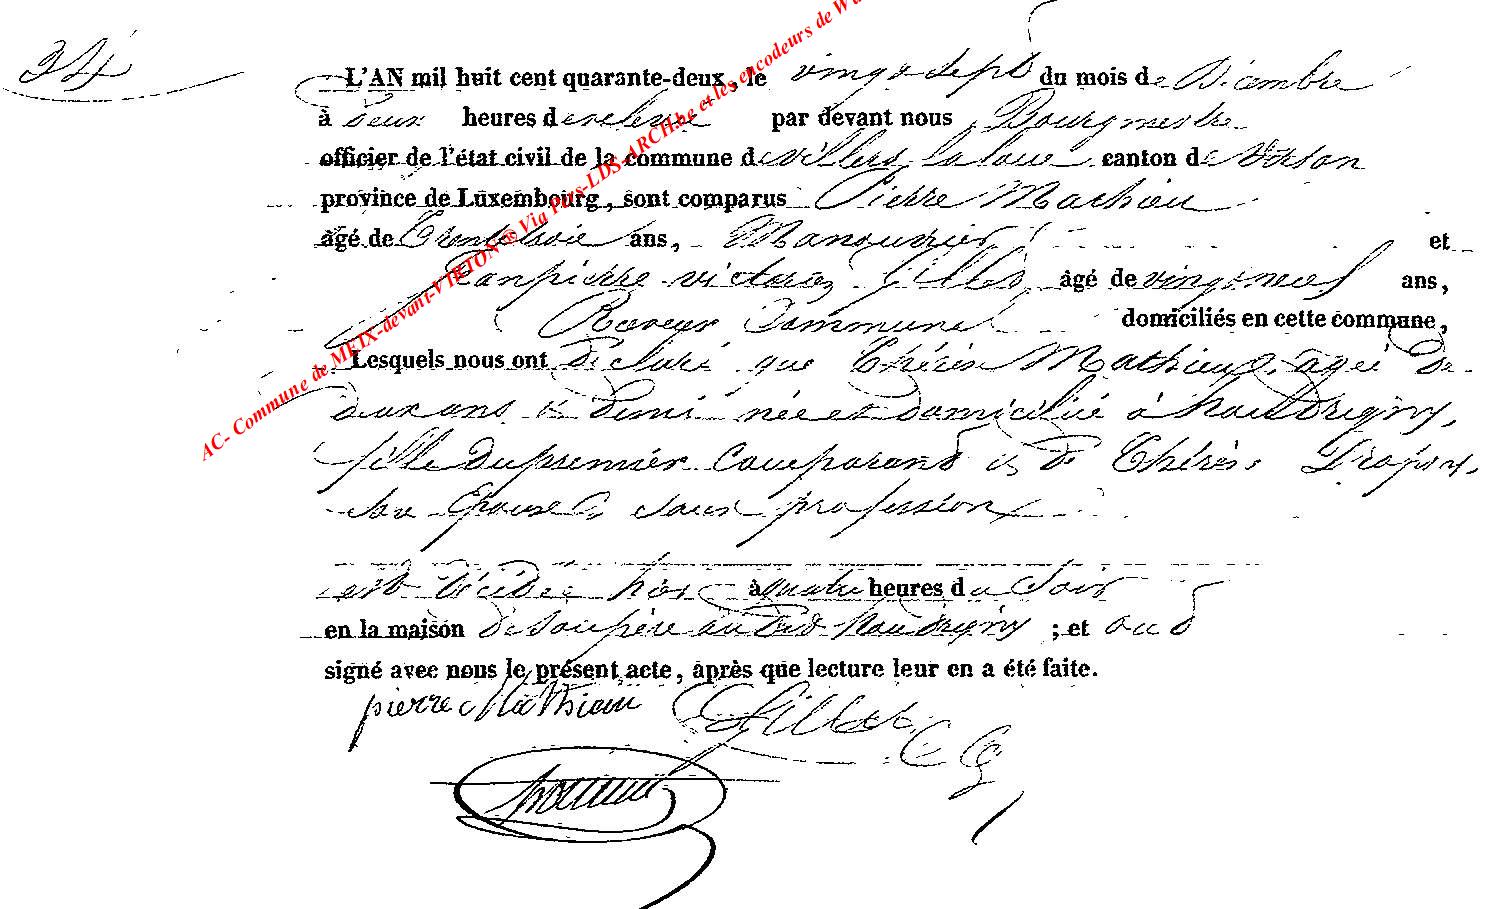 34
L'AN mil huit cent quarante-deux, le vingt sept du mois de Décembre
à Deux heures de relevée par devant nous Bourgmestre
officier de l'état civil de la commune de villers la loue canton de Virton
province de Luxembourg, sont comparus Pierre Mathieu
âgé de Trente trois ans, Manouvrier et
Jean pierre victores Gillet âgé de vingt neuf ans,
Receveur Communel domiciliés en cette commune,
Lesquels nous ont Déclaré que Thérèse Mathieu, agée De
deux ans et Demi née et domiciliée à houdrigny,
fille du premier Comparant et de Thérèse
son Epouse sans profession
est Décédée hier à quatre heures du soir
en la maison de son père au dit houdrigny ; et ont
signé avec nous le présent acte, après que lecture leur en a été faite.
pierre Mathieu Gillet
AC- Commune de MEIX-devant-VIRTON ® Via Pers-LDS-ARCH.be et les encodeurs de